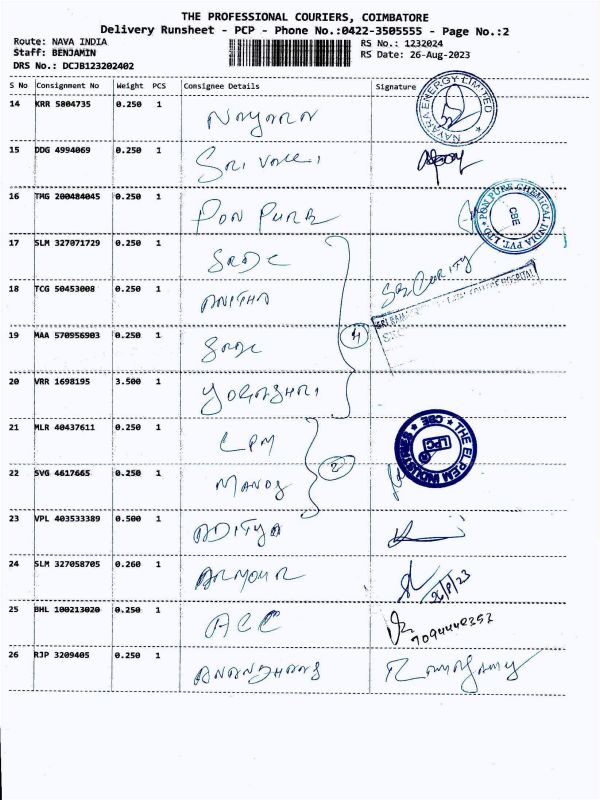 THE PROFESSIONAL COURIERS, COIMBATORE
Delivery Runsheet - PCP - Phone No.:0422-3505555 - Page No.:2
Route: NAVA INDIA
RS No.: 1232024
Staff: BENJAMIN
RS Date: 26-Aug-2023
DRS No.: DCJB123202402
S No Consignment No Weight PCS Consignee Details Signature
14 KRR 5804735 0.250 1 NAYARA
NAYARA ENERGY LIMITED
15 DDG 4994069 0.250 1 SRI VALLI
16 TMG 200484045 0.250 1 PON PURE
PON PURE CHEMICAL INDIA PVT. LTD.
CBE
17 SLM 327071729 0.250 1
SECURITY
18 TCG 50453008 0.250 1 ANITHA
COLLEGE HOSPITAL
4
19 MAA 570956903 0.250 1
20 VRR 1698195 3.500 1 YOGASHRI
21 MLR 40437611 0.250 1 LPM
THE ELPEM INDUSTRIES
CBE
LPC
2
22 SVG 4617665 0.250 1 MANOJ
23 VPL 403533389 0.500 1 ADITYA
24 SLM 327058705 0.260 1 ARMOUR
26/8/23
25 BHL 100213020 0.250 1 ACC
7094440352
26 RJP 3209405 0.250 1